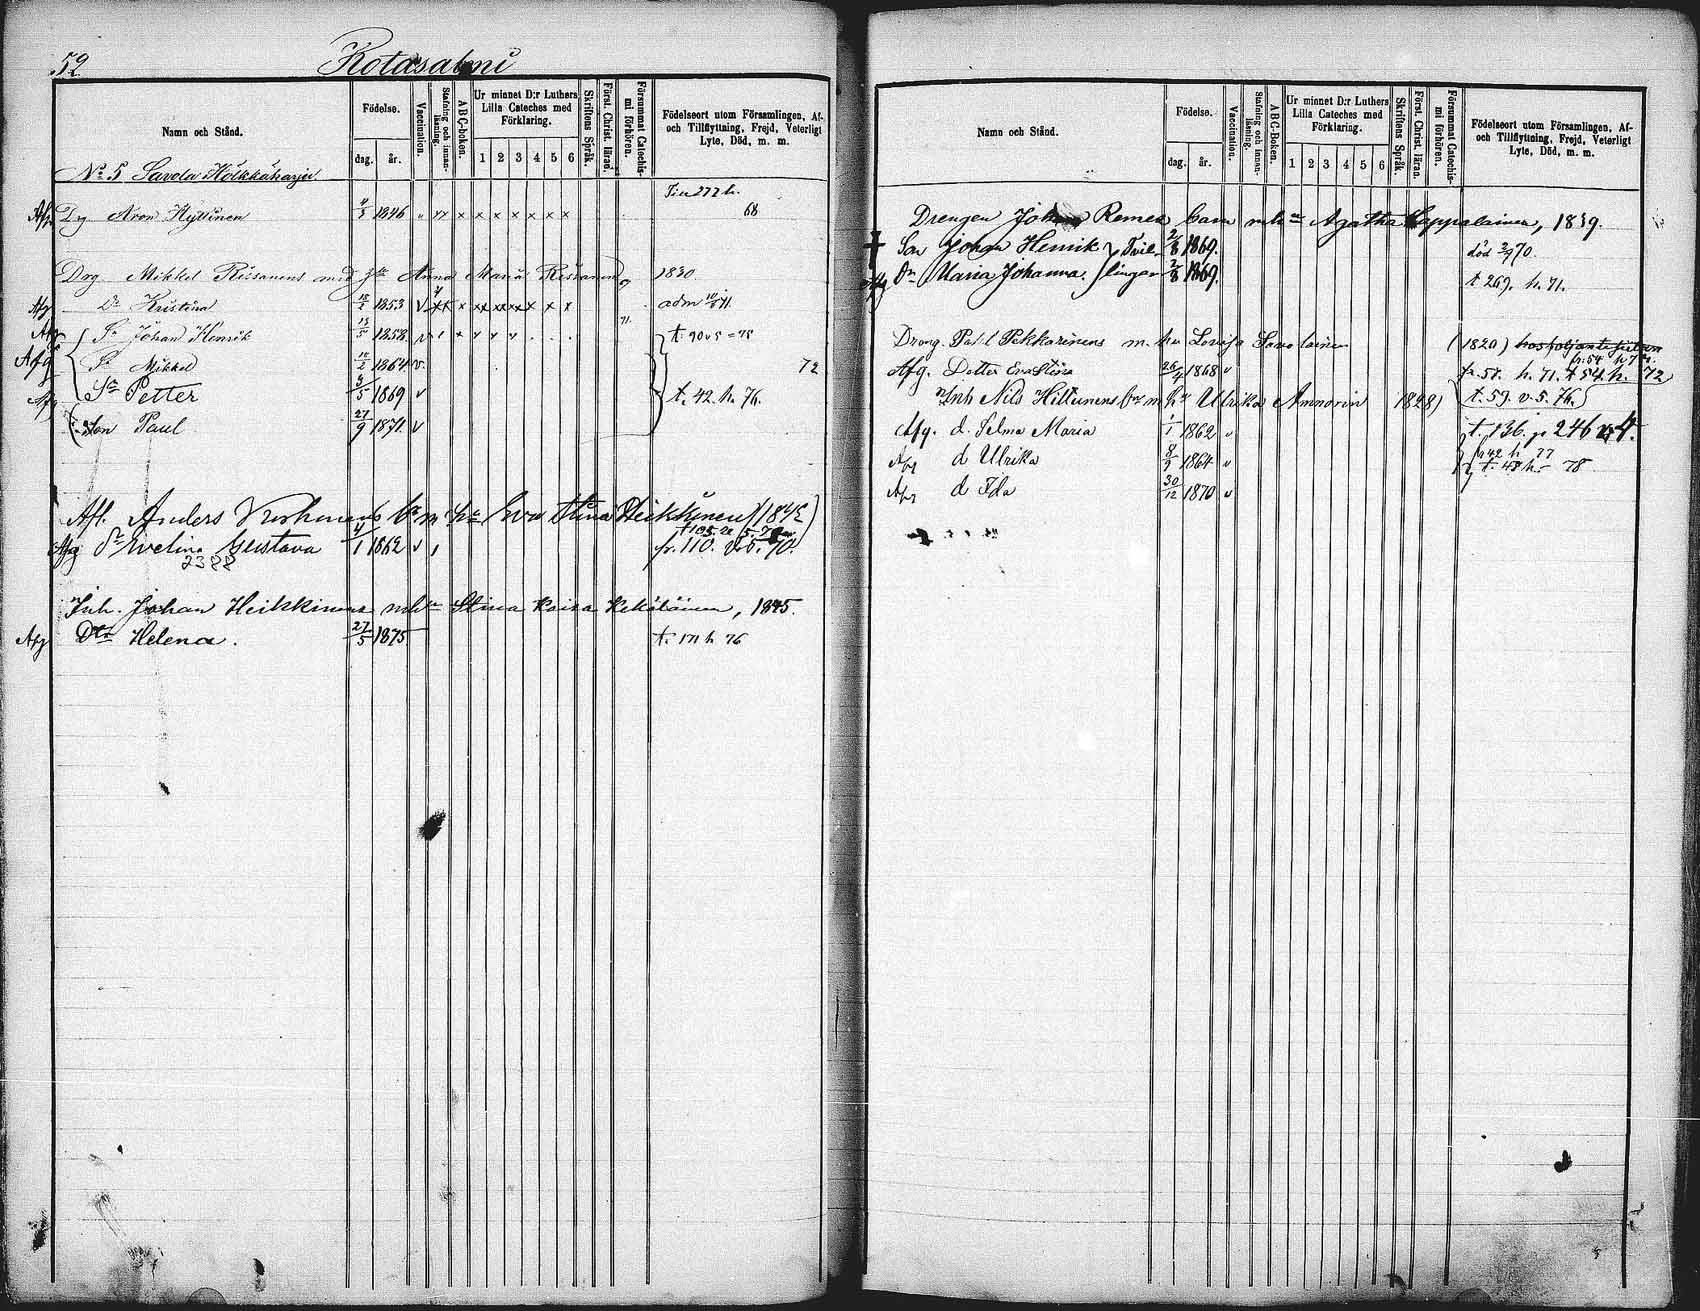 52
Kotasalmi
Namn och Stånd.
Födelse.
dag. år.
Vaccination.
Stafning och innan-läsning.
ABC-boken.
Ur minnet D:r Luthers
Lilla Cateches med
Förklaring.
1 2 3 4 5 6
Skriftens Språk.
Först. Christ. läran.
Försummat Catechis-
mi förhören.
Födelseort utom Församlingen, Af-
och Tillflyttning, Frejd, Veterligt
Lyte, Död, m. m.
No 5 Savola Hölkkäharju
Afg. Dg Aron Hyttinen 1846 v xx x x x x x x x 68
Drg Mikkel Reissanens med Anna Maria 1830
Afg Dr Kristina 18/2 1853 v adm 71.
Afg Sn Johan Henrik 13/5 1858 v t. 90 v 5 = 75
Afg Sn Mikkel 10/2 1864 v. 72
Afg Sn Petter 3/5 1869 v t. 42. h. 76.
Son Paul 27/9 1871 v
Afl. Anders bn m hu Eva Stina Heikkinen (1842)
Afg Evelina Gustava 4/1 1862 v fr. 110. v. 5. 70.
2388
Inh. Johan Heikkinens Stina Kaisa Kekäläinen, 1845.
Afg Dtr Helena. 27/5 1875 t. 171 h 76
Namn och Stånd.
Födelse.
dag. år.
Vaccination.
Stafning och innan-läsning.
ABC-boken.
Ur minnet D:r Luthers
Lilla Cateches med
Förklaring.
1 2 3 4 5 6
Skriftens Språk.
Först. Christ. läran.
Försummat Catechis-
mi förhören.
Födelseort utom Församlingen, Af-
och Tillflyttning, Frejd, Veterligt
Lyte, Död, m. m.
Drengen Johan Remes barn Agatha Lappalainen, 1839.
Son Johan Henrik Tvil- 2/8 1869. död 2/9 70.
Afg Dr Maria Johanna. lingar 2/8 1869. t 269. h. 71.
Dreng. Påhl Pekkarinens m. hu Lovisa Savolainen (1820)
Afg. Dotter Eva Stina 26/4 1868 v fr. 58. h. 71. t 54. h. 72
Inh Nils Hiltunens bn m hu Ulrika Ammorin 1828) t. 59. v. 5. 76.
Afg. d. Selma Maria 1/1 1862 v t. 136.
Afg d Ulrika 8/9 1864 v 42 h 77
t. 48 h. 78
Afg d Ida 30/12 1870 v